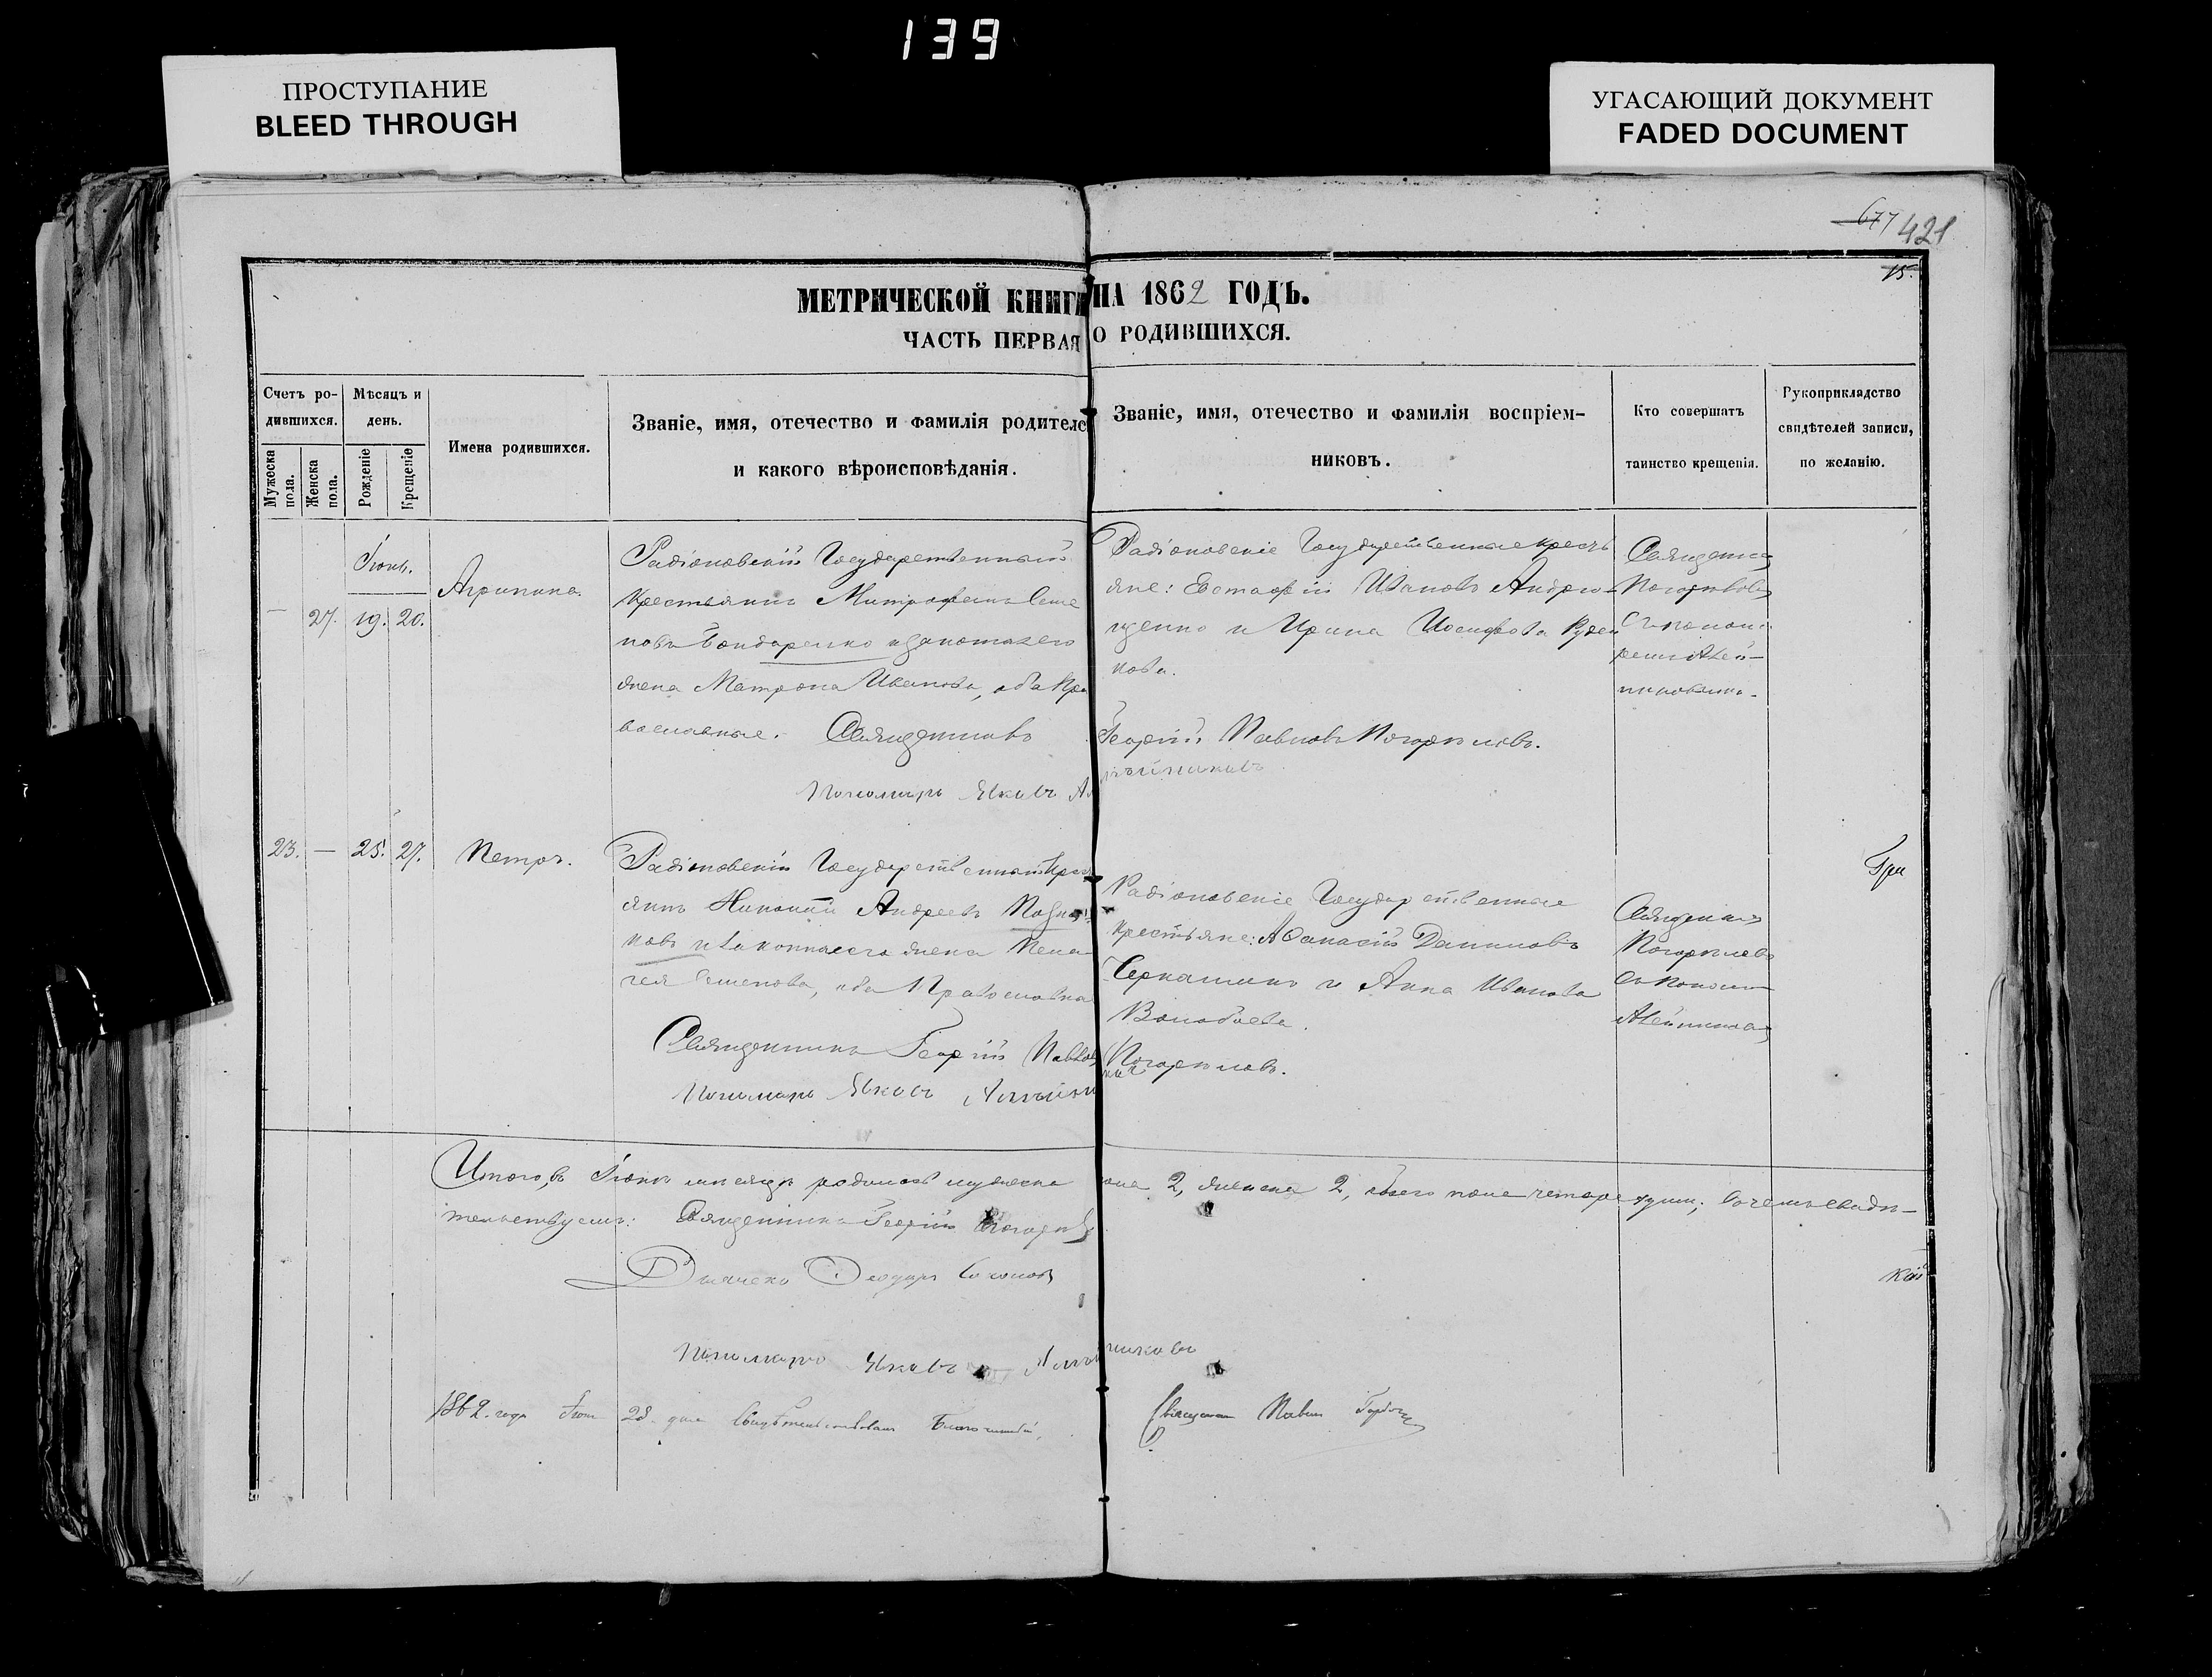 139
ПРОСТУПАНИЕ
BLEED THROUGH
УГАСАЮЩИЙ ДОКУМЕНТ
FADED DOCUMENT
677 421
15.
МЕТРИЧЕСКОЙ КНИГИ НА 1862 ГОДЪ.
ЧАСТЬ ПЕРВАЯ О РОДИВШИХСЯ.
Счетъ ро-
дившихся.
Мужеска
пола.
Женска
пола.
Мѣсяцъ и
день.
Рожденіе
Крещеніе
Имена родившихся.
Званіе, имя, отечество и фамилія родителе
и какого вѣроисповѣданія.
Званіе, имя, отечество и фамилія воспріем-
никовъ.
Кто совершатъ
таинство крещенія.
Рукоприкладство
свидѣтелей записи,
по желанію.
Іюнь.
— 27. 19. 20.
Агрипина.
Радіоновскій Государственный
Крестьянинъ Митрофанъ Семе
новъ Бондаренко и законная его
жена Матрона Иванова, оба Пра
вославные. Священникъ
Пономарь Яковъ
Радіоновскіе Государственные кресть
яне: Евстафій Ивановъ
щенко и Ирина Іосифова
нова.
Георгій Павловъ Погорѣловъ.
Священник
Погорѣловъ
съ понома-
ремъ Алей-
никовымъ.
23. — 25. 27.
Петръ.
Радіоновскій Государственный Крест
янинъ Николай Андреевъ
ковъ и законная его жена Пела
гея Семенова, оба Православна
Священникъ Георгій Павлов Погорѣловъ.
Пономарь Яковъ
Радіоновскіе Государственные
крестьяне: Аѳанасій Даниловъ
Черкашинъ и Анна Иванова
Воробьева.
Священникъ
Погорѣловъ
съ Поном
Алейников
Гри
Итого, въ Іюнѣ мѣсяцѣ родилось мужеска пола 2, женска 2, обоего пола четыре души; въ чемъ свидѣ-
тельствуемъ: Священникъ Георгій Погорѣл
Дьячекъ Ѳеодоръ Соколов
кой
Пономарь Яковъ Алейниковъ
1862. года Іюня 28. дня Свидѣтельствовалъ Благочинный, Священник Павелъ